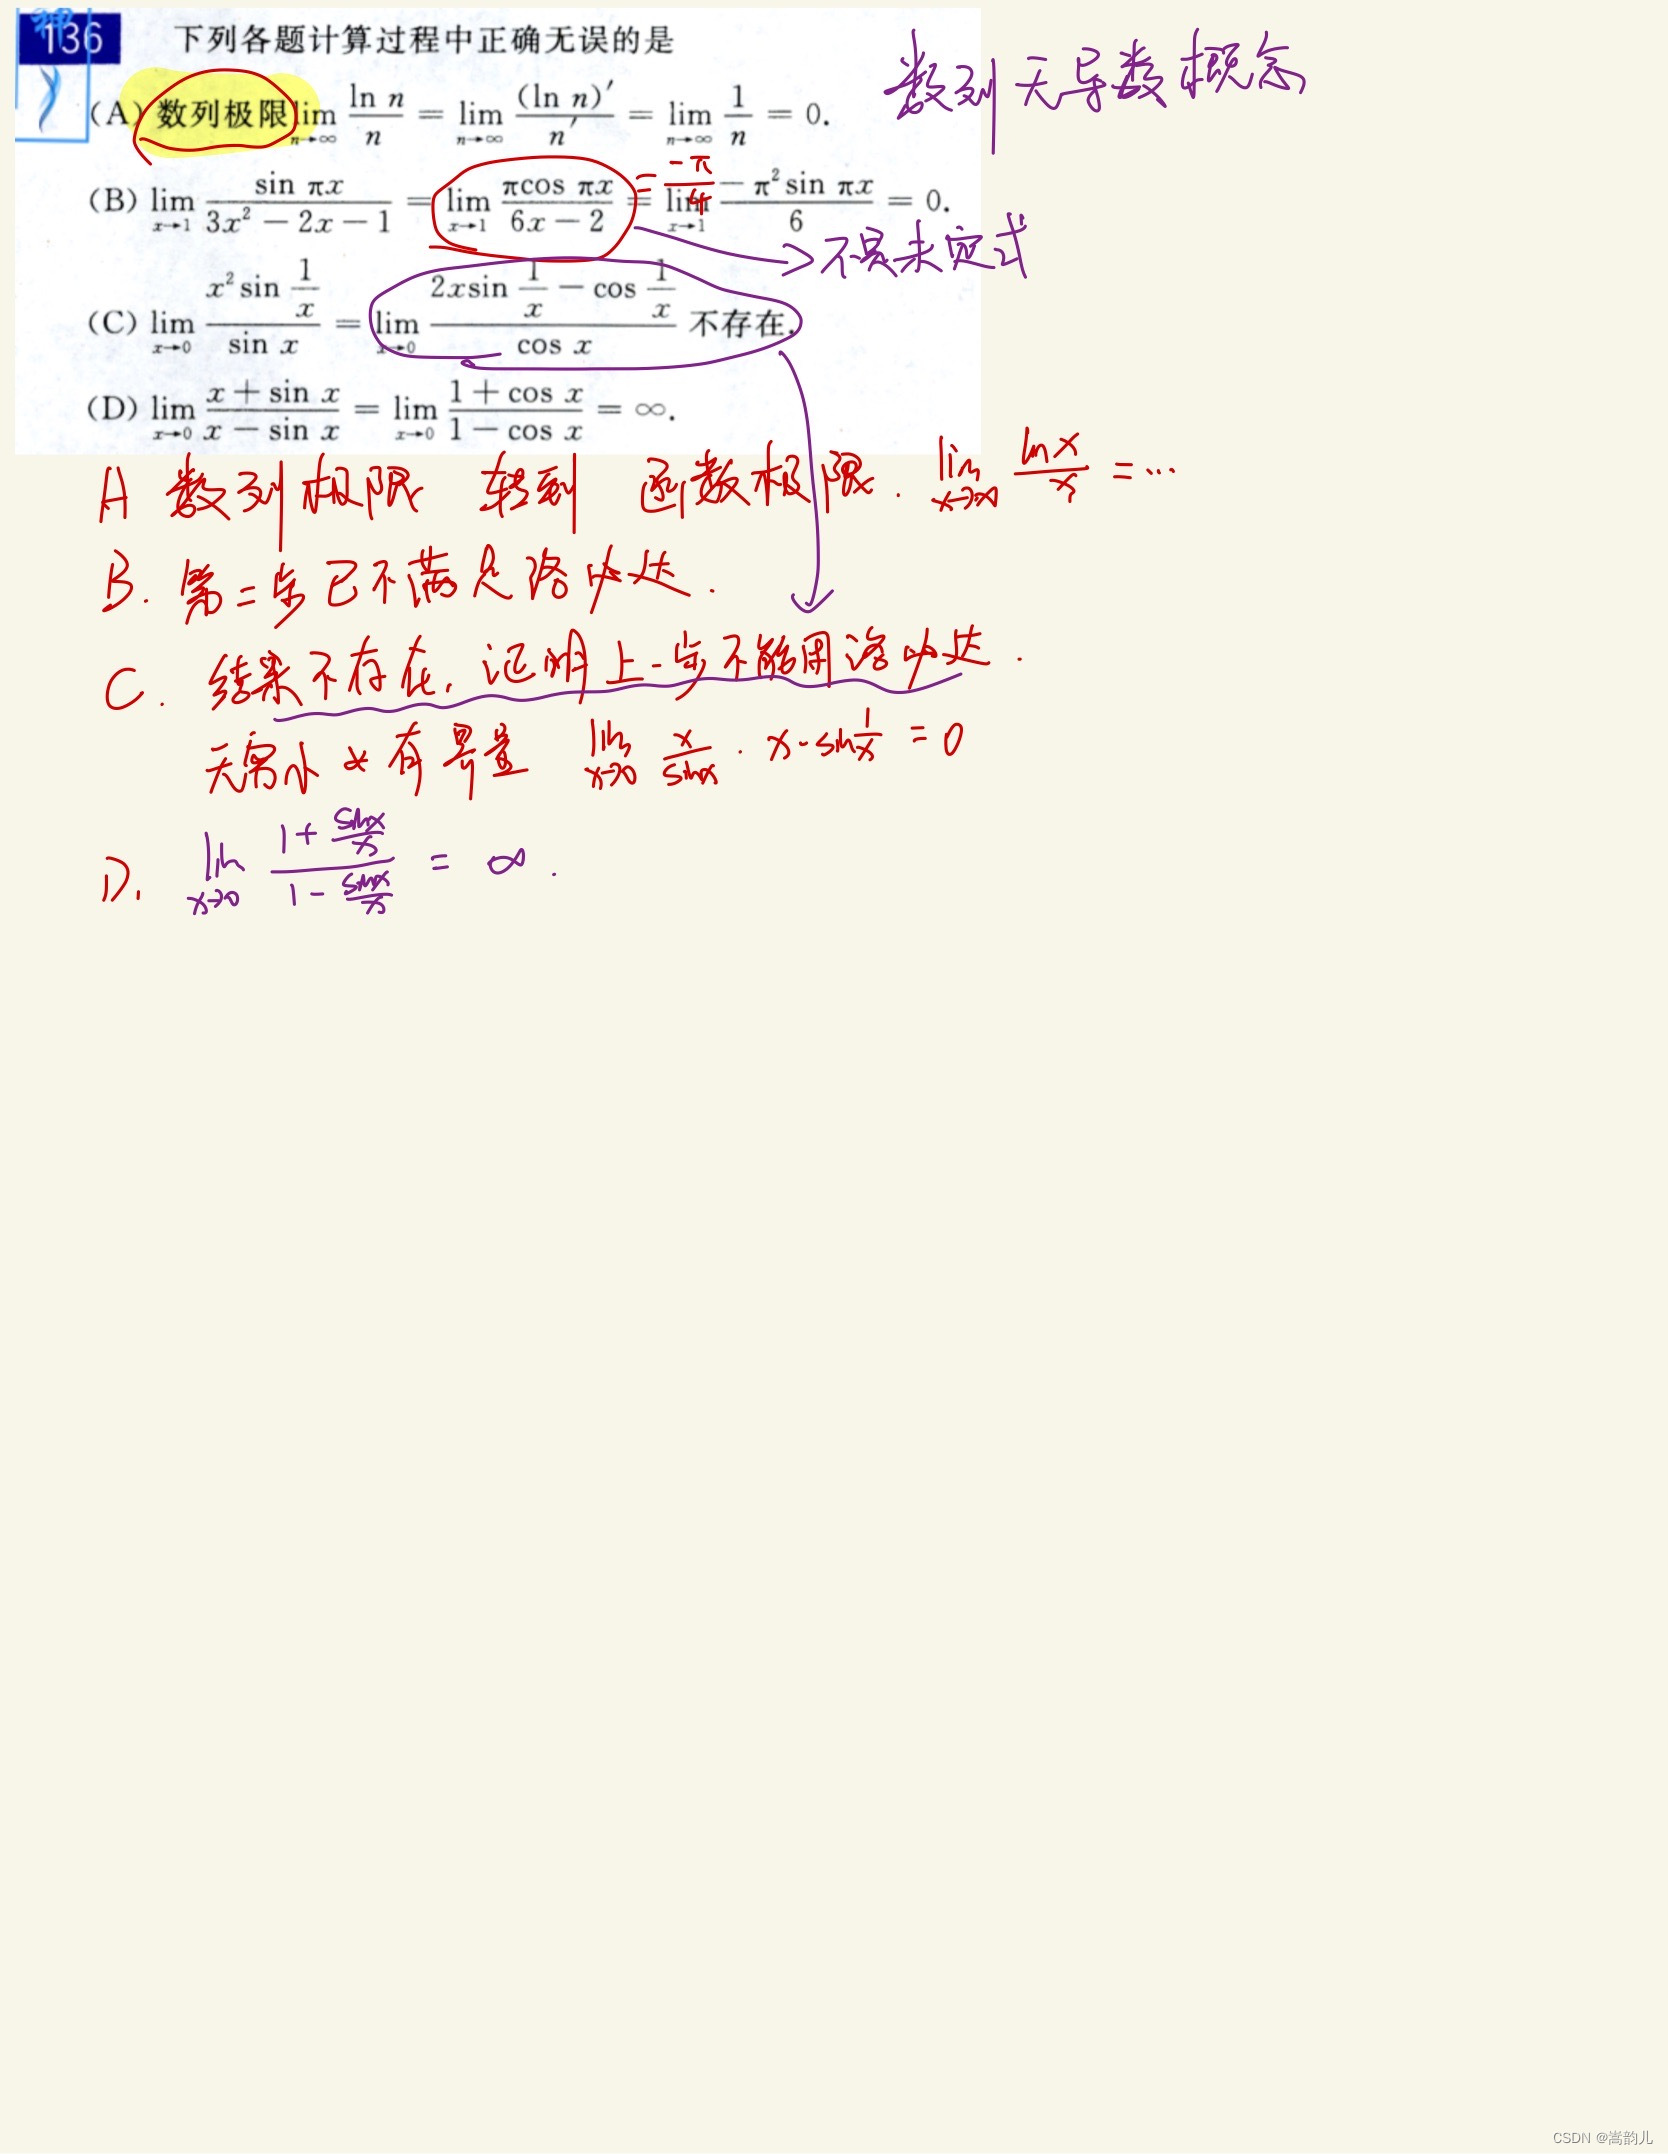 136 下列各题计算过程中正确无误的是
数列无导数概念
(A) 数列极限 lim_{n→∞} ln n / n = lim_{n→∞} (ln n)′ / n′ = lim_{n→∞} 1/n = 0.
(B) lim_{x→1} sin πx / (3x² − 2x − 1) = lim_{x→1} πcos πx / (6x − 2) = lim_{x→1} −π² sin πx / 6 = 0.
= −π/4
不是未定式
(C) lim_{x→0} x² sin (1/x) / sin x = lim_{x→0} (2x sin (1/x) − cos (1/x)) / cos x 不存在.
(D) lim_{x→0} (x + sin x) / (x − sin x) = lim_{x→0} (1 + cos x) / (1 − cos x) = ∞.
A 数列极限 转到 函数极限. lim_{x→∞} ln x / x = ...
B. 第二步已不满足洛必达.
C. 结果不存在, 证明上一步不能用洛必达.
无穷小 * 有界量 lim_{x→0} x / sin x · x · sin 1/x = 0
D. lim_{x→0} (1 + sin x / x) / (1 − sin x / x) = ∞.
CSDN @嵩韵儿